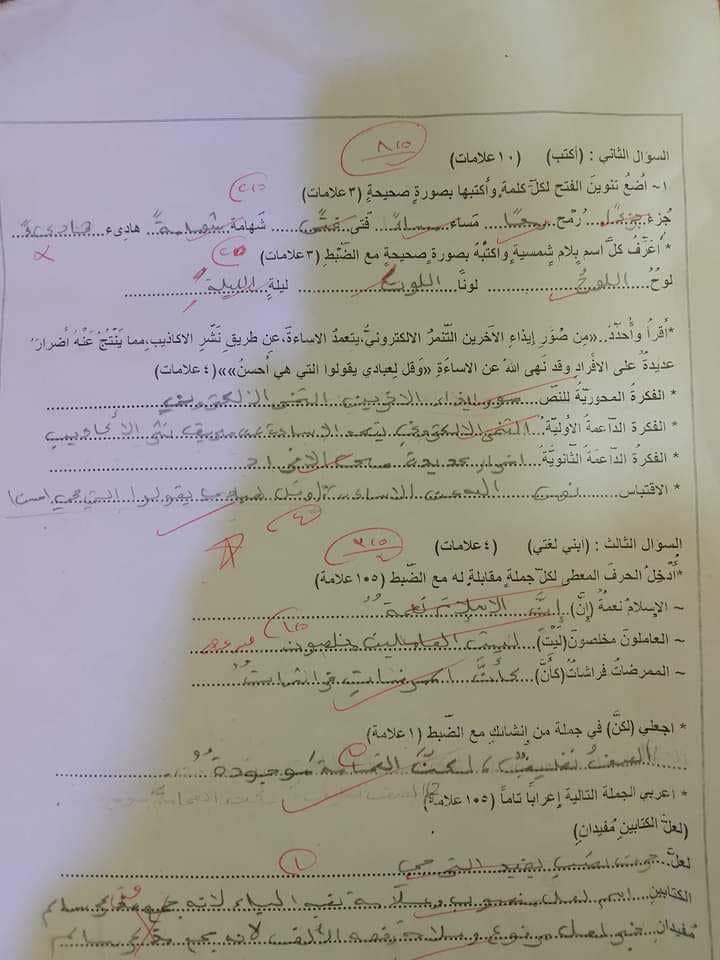 السؤال الثاني : (أكتب) (١٠ علامات) ٨,٥
١~ أضعُ تنوينَ الفتح لكلّ كلمةٍ وأكتبها بصورةٍ صحيحةٍ (٣ علامات) ٢,٥
جُزءٌ جزءًا رُمْح رمحًا مَساء مساءً فَتى فتًى شَهامَة شهامةً هادِىء
* أعَرِّفُ كلَّ اسمٍ بلام شمسيةٍ وأكتبُهُ بصورةٍ صحيحةٍ مع الضّبطِ (٣ علامات) ٢
لوحٌ اللوحُ لونًا اللون ليلةٍ الليلة
*أقرأ وأُحدِّدُ..«مِن صُوَرِ إيذاءِ الآخرين التّنمرُ الالكترونيُّ،يتعمدُ الاساءةَ،عن طريقِ نَشْرِ الاكاذيبِ،مما يَنْتُجُ عَنْهُ أضرارٌ
عديدةٌ على الأفرادِ وقد نَهى اللهُ عن الاساءَةِ «وَقل لِعبادي يقولوا التي هي أحسنُ»» (٤ علامات)
* الفكرةُ المحوريّةُ للنّصّ صور إيذاء الآخرين التنمر الإلكتروني
* الفكرة الدّاعمة الأوليّةُ التنمر الإلكتروني يتعمد الاساءة عن طريق نشر الأكاذيب
* الفكرة الدّاعمَة الثانويّةُ أضرار عديدة على الأفراد
* الاقتباس الاساءة وقل لعبادي يقولوا التي هي أحسن
٤
السؤال الثالث : (أبني لغتي) (٤ علامات) ٣,٥
*أُدْخِلُ الحرفَ المعطى لكلّ جملةٍ مقابلةٍ له مع الضّبط (١٠٥ علامة)
~ الإسلامُ نعمةٌ (إنَّ) إنَّ الإسلامَ نعمةٌ
١,٥
~ العاملونَ مخلصونَ (لَيْتَ) ليتَ العاملين مخلصون
~ الممرضاتُ فراشاتٌ (كأنَّ) كأنَّ الممرضاتِ فراشاتٌ
* اجعلي (لكنَّ) في جملة من إنشائكِ مع الضّبط (١ علامة)
١
الصفُّ نظيفٌ، لكنَّ القمامةَ موجودةٌ
* اعربي الجملة التالية إعراباً تاماً (١٠٥ علامة)
(لعلَّ الكتابينِ مُفيدانِ)
١
لعلَّ: حرف نصب يفيد الترجي
الكتابينِ اسم لعل منصوب وعلامة نصبه الياء لأنه جمع مذكر سالم
مُفيدانِ خبر لعل مرفوع وعلامة رفعه الألف لأنه جمع مذكر سالم